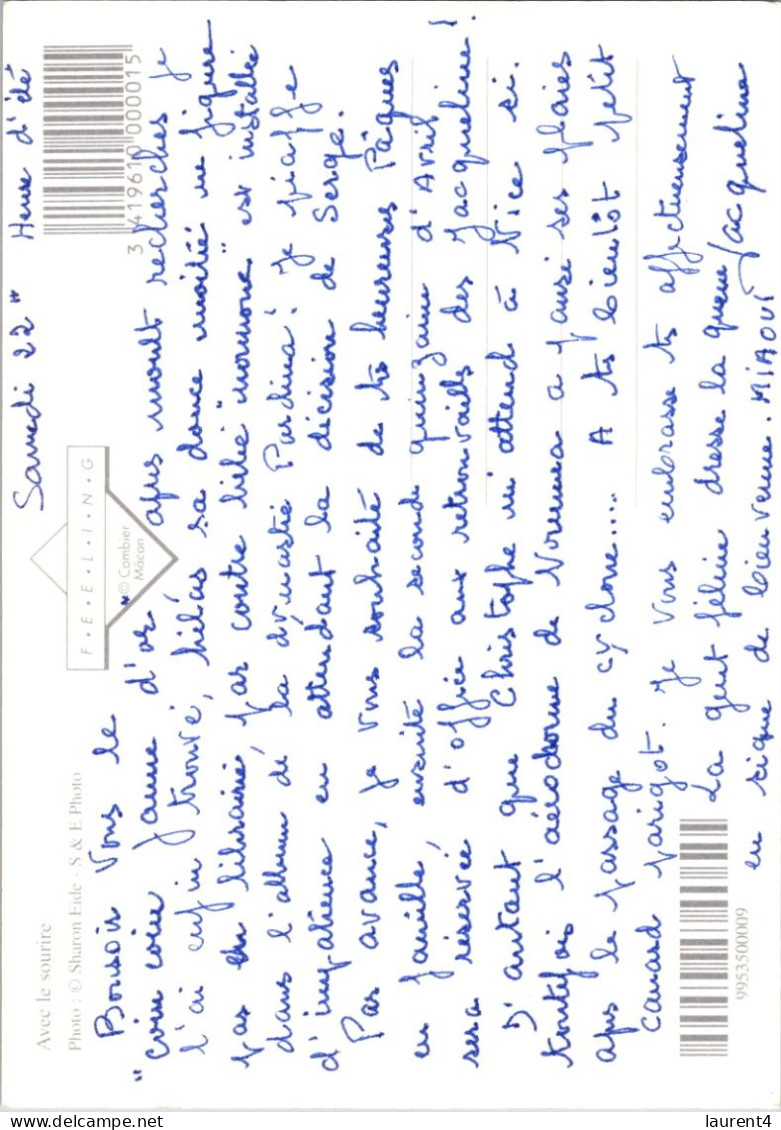 Avec le sourire
Photo : © Sharon Eide - S & E Photo
F•E•E•L•I•N•G
© Combier
Mâcon
3 419610 000015
Samedi 22" Heure d'été
Bonsoir Vous le
"coin coin jaune d'or" après moult recherches je
l'ai enfin trouvé, hélas sa douce moitié ne figure
pas en librairie, par contre bébé "mormone" est installée
dans l'album de la dynastie Pardina! Je piaffe
d'impatience en attendant la décision de Serge.
Par avance, je vous souhaite de très heureuses Pâques
en famille, ensuite la seconde quinzaine d'Avril
sera réservée d'office aux retrouvailles des Jacqueline!
D'autant que Christophe m'attend à Nice ci.
toutefois l'aérodrome de Noumea a pansé ses plaies
après le passage du cyclone.... A très bientôt petit
canard parigot. Je vous embrasse très affectueusement
La gent féline dresse la queue Jacqueline
en signe de bienvenue. MIAOUÏ
9953500009
laurent4